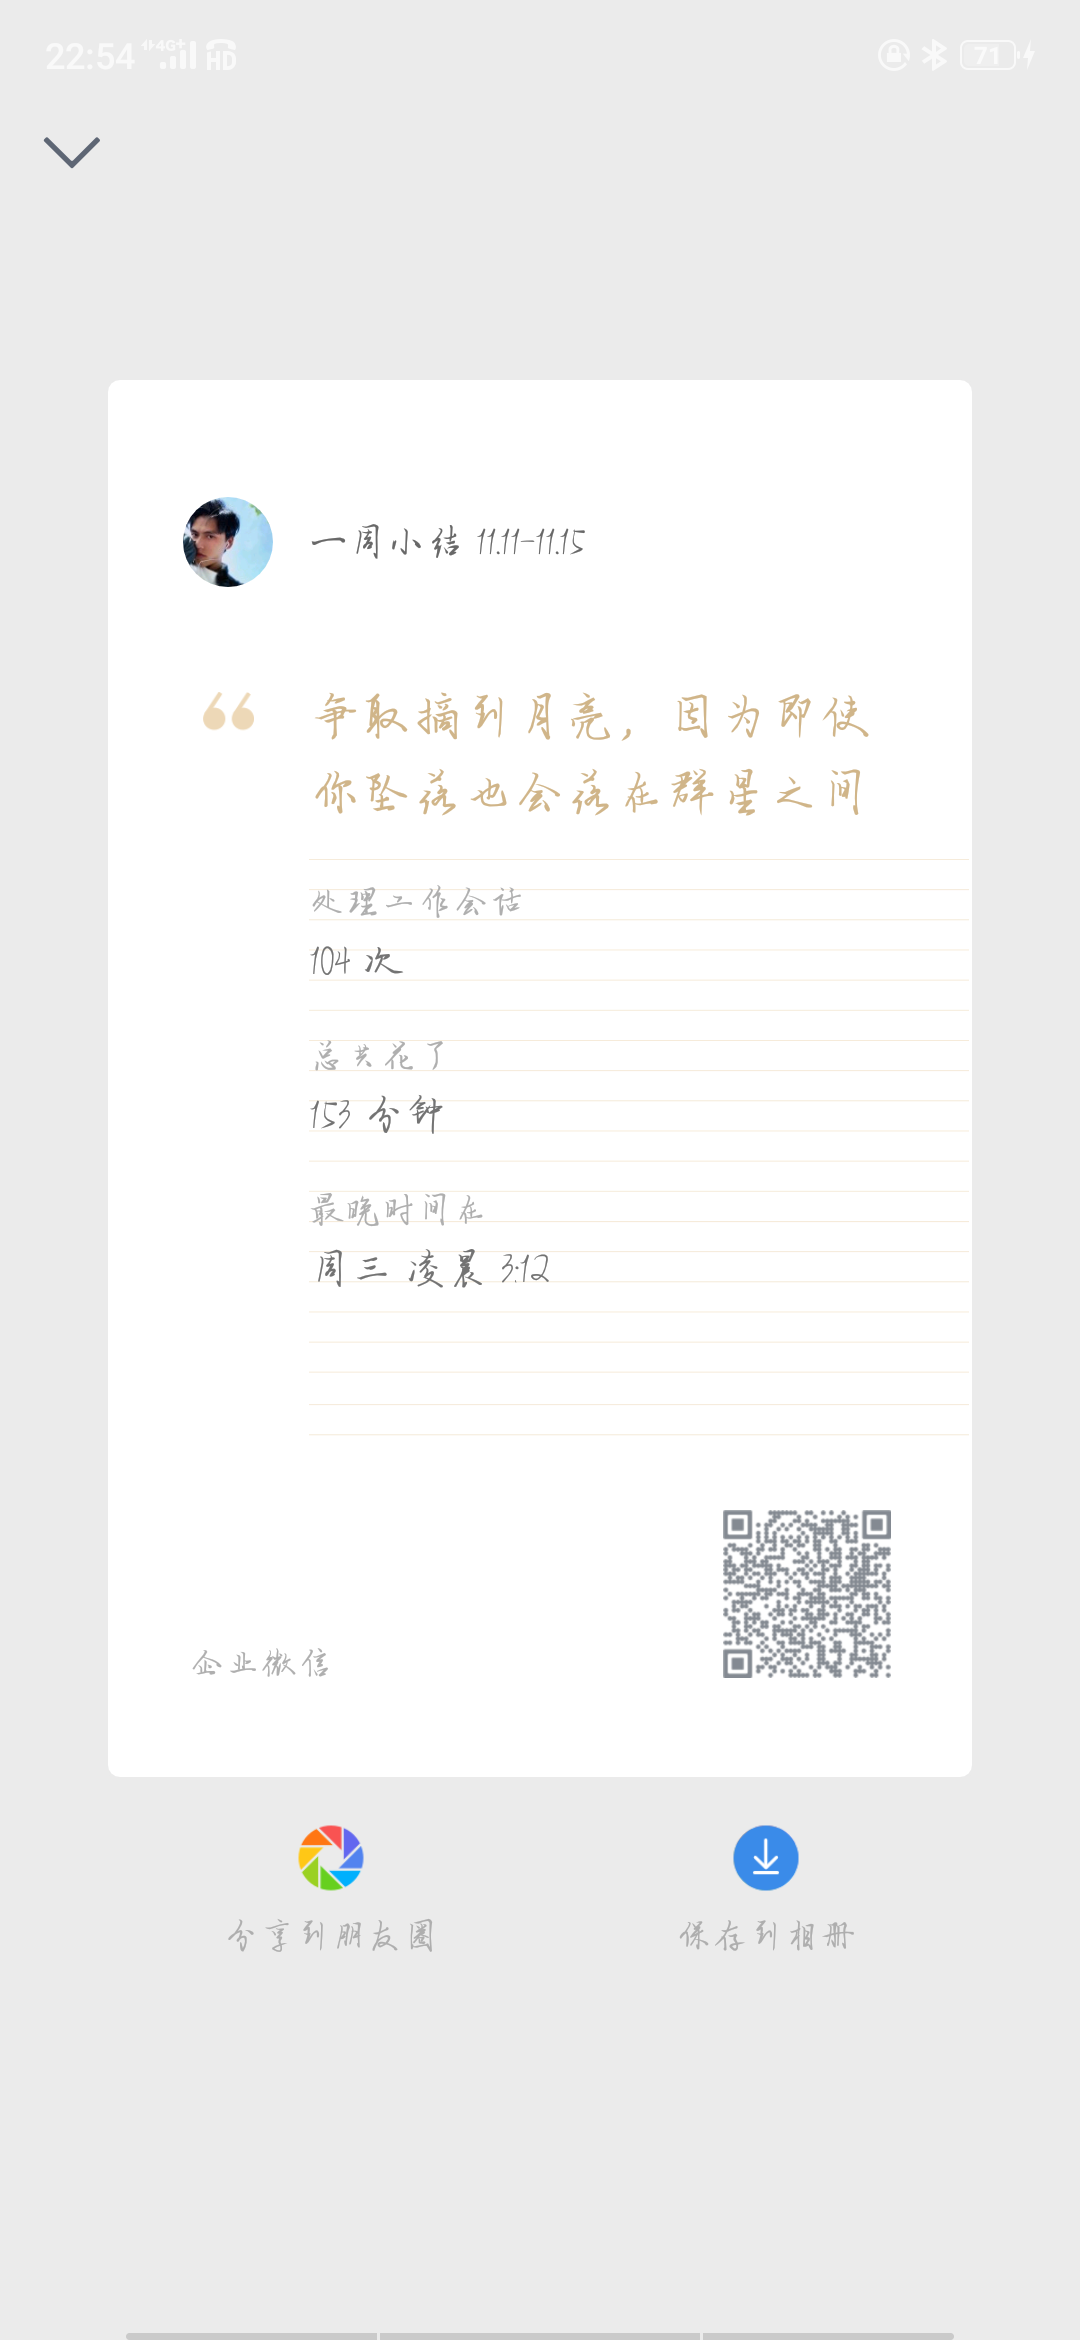 22:54 4G+ HD 71
一周小结 11.11-11.15
争取摘到月亮，因为即使
你坠落也会落在群星之间
处理工作会话
104 次
总共花了
153 分钟
最晚时间在
周三 凌晨 3:12
企业微信
分享到朋友圈
保存到相册